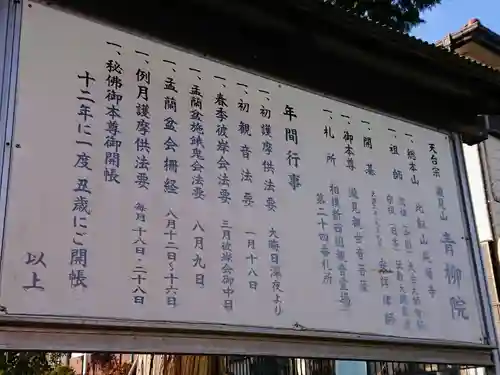 天台宗 瀧見山 青柳院
一、総本山 比叡山 延暦寺
一、祖師
一、開基
一、御本尊 瀧見観世音菩薩
一、札所 相模新西国観音霊場
第二十四番札所
年間行事
一、初護摩供法要 大晦日深夜より
一、初観音法要 一月十八日
一、春季彼岸会法要 三月彼岸会御中日
一、盂蘭盆施餓鬼会法要 八月九日
一、盂蘭盆会棚経 八月十二日〜十六日
一、例月護摩供法要 毎月十八日・二十八日
一、秘佛御本尊御開帳
十二年に一度丑歳にご開帳
以上